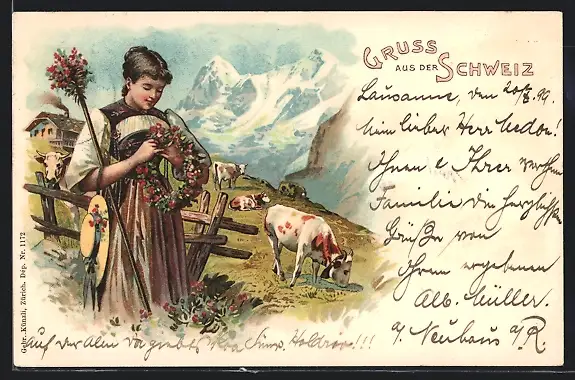 GRUSS
AUS DER
SCHWEIZ
Lausanne, den 20/8. 99.
Mein lieber Herr
Ihnen & Ihrer werthen
Familie die herzlichsten
Grüße von
Ihrem ergebenen
Alb. Müller.
z/ Neuhaus a/R.
Auf der Alm da giebts koa Sünd, Holdrio!!!
Gebr. Künzli, Zürich. Dép. Nr. 1172